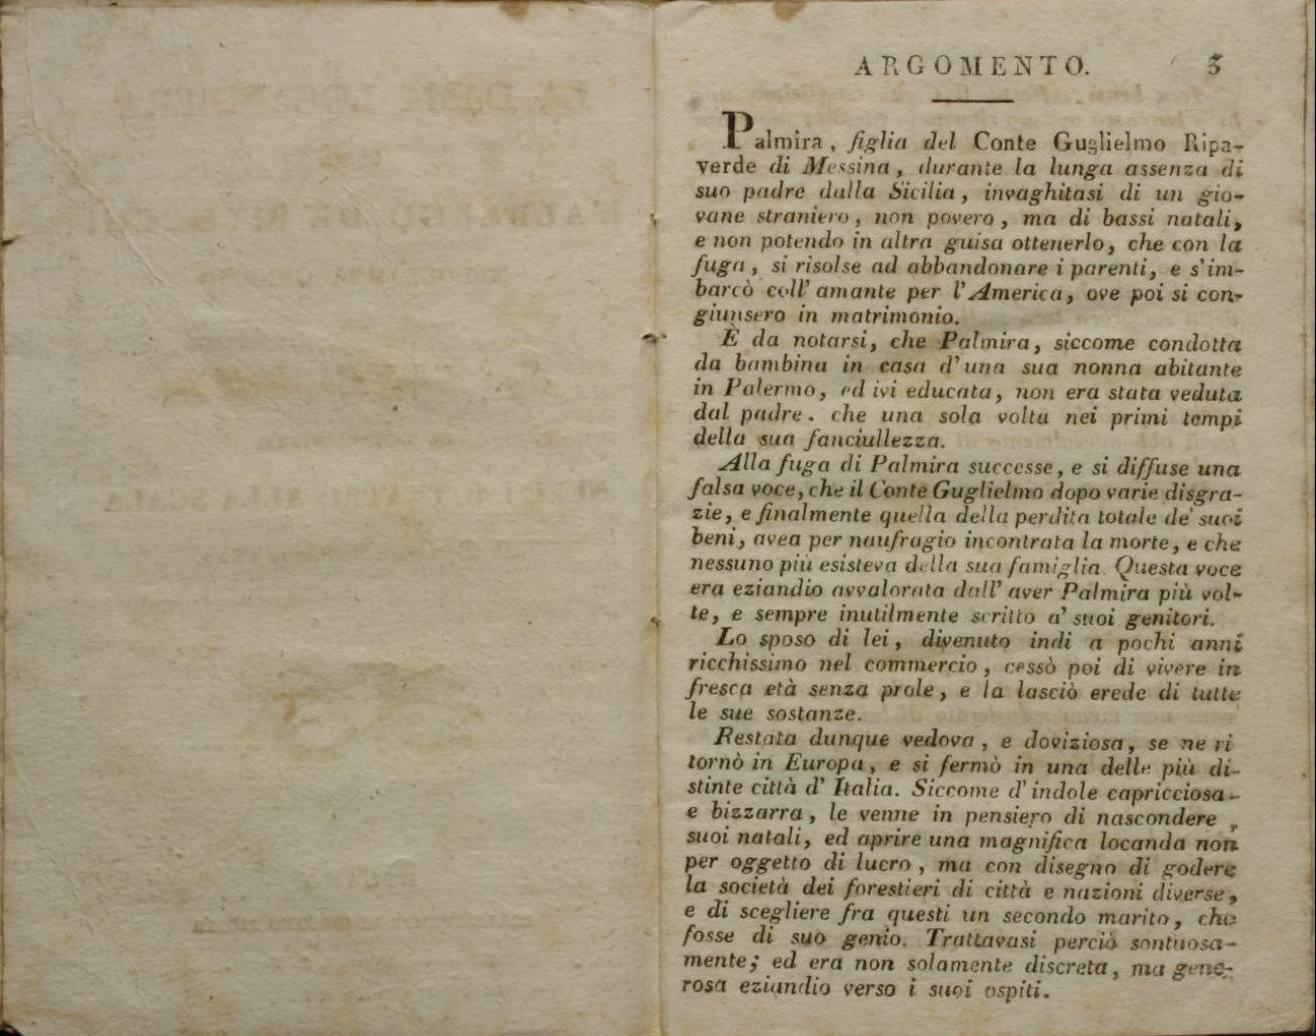 ARGOMENTO. 3
Palmira, figlia del Conte Guglielmo Ripa-
verde di Messina, durante la lunga assenza di
suo padre dalla Sicilia, invaghitasi di un gio-
vane straniero, non povero, ma di bassi natali,
e non potendo in altra guisa ottenerlo, che con la
fuga, si risolse ad abbandonare i parenti, e s'im-
barcò coll' amante per l'America, ove poi si con-
giunsero in matrimonio.
È da notarsi, che Palmira, siccome condotta
da bambina in casa d'una sua nonna abitante
in Palermo, ed ivi educata, non era stata veduta
dal padre. che una sola volta nei primi tempi
della sua fanciullezza.
Alla fuga di Palmira successe, e si diffuse una
falsa voce, che il Conte Guglielmo dopo varie disgra-
zie, e finalmente quella della perdita totale de' suoi
beni, avea per naufragio incontrata la morte, e che
nessuno più esisteva della sua famiglia. Questa voce
era eziandio avvalorata dall' aver Palmira più vol-
te, e sempre inutilmente scritto a' suoi genitori.
Lo sposo di lei, divenuto indi a pochi anni
ricchissimo nel commercio, cessò poi di vivere in
fresca età senza prole, e la lasciò erede di tutte
le sue sostanze.
Restata dunque vedova, e doviziosa, se ne ri
tornò in Europa, e si fermò in una delle più di-
stinte città d' Italia. Siccome d'indole capricciosa-
e bizzarra, le venne in pensiero di nascondere
suoi natali, ed aprire una magnifica locanda non
per oggetto di lucro, ma con disegno di godere
la società dei forestieri di città e nazioni diverse,
e di scegliere fra questi un secondo marito, che
fosse di suo genio. Trattavasi perciò sontuosa-
mente; ed era non solamente discreta, ma gene-
rosa eziandio verso i suoi ospiti.